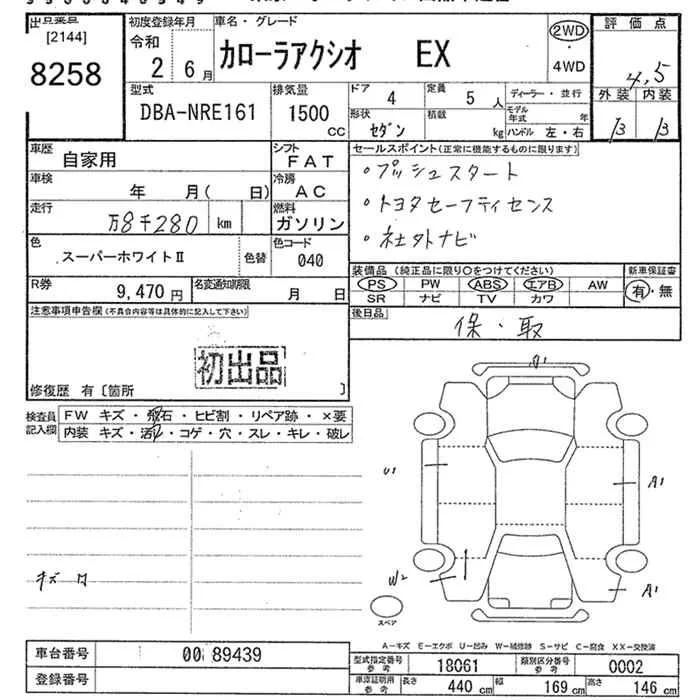 出品票
[2144]
8258
初度登録年月
令和
2 6月
車名・グレード
カローラアクシオ EX
2WD
・
4WD
評価点
4,5
外装 内装
B B
型式
DBA-NRE161
排気量
1500
CC
ドア
4
定員
5人
形状
セダン
積載
kg
ディーラー・並行
モデル年式 年
ハンドル 左・右
車歴
自家用
シフト
FAT
車検
年 月( 日)
冷房
AC
走行
万8千280 km
燃料
ガソリン
色
スーパーホワイトⅡ
色替
色コード
040
R券
9,470円
名変通知期限
月 日
セールスポイント(正常に機能するものに限ります)
・プッシュスタート
・トヨタセーフティセンス
・社外ナビ
装備品(純正品に限り○をつけてください)
新車保証書
PS PW ABS エアB AW
SR ナビ TV カワ
有・無
後日品
保・取
注意事項申告欄(不具合内容等は具体的に記入して下さい)
初出品
修復歴 有〔箇所 〕
検査員
記入欄
FW キズ・飛石・ヒビ割・リペア跡・×要
内装 キズ・汚れ・コゲ・穴・スレ・キレ・破レ
U1
A1
W2
A1
スペア
A-キズ E-エクボ U-凹み W-補修跡 S-サビ C-腐食 XX-交換済
車台番号
89439
登録番号
型式指定番号
参考
18061
類別区分番号
参考
0002
車庫証明用
参考
長さ 440cm
幅 169cm
高さ 146cm